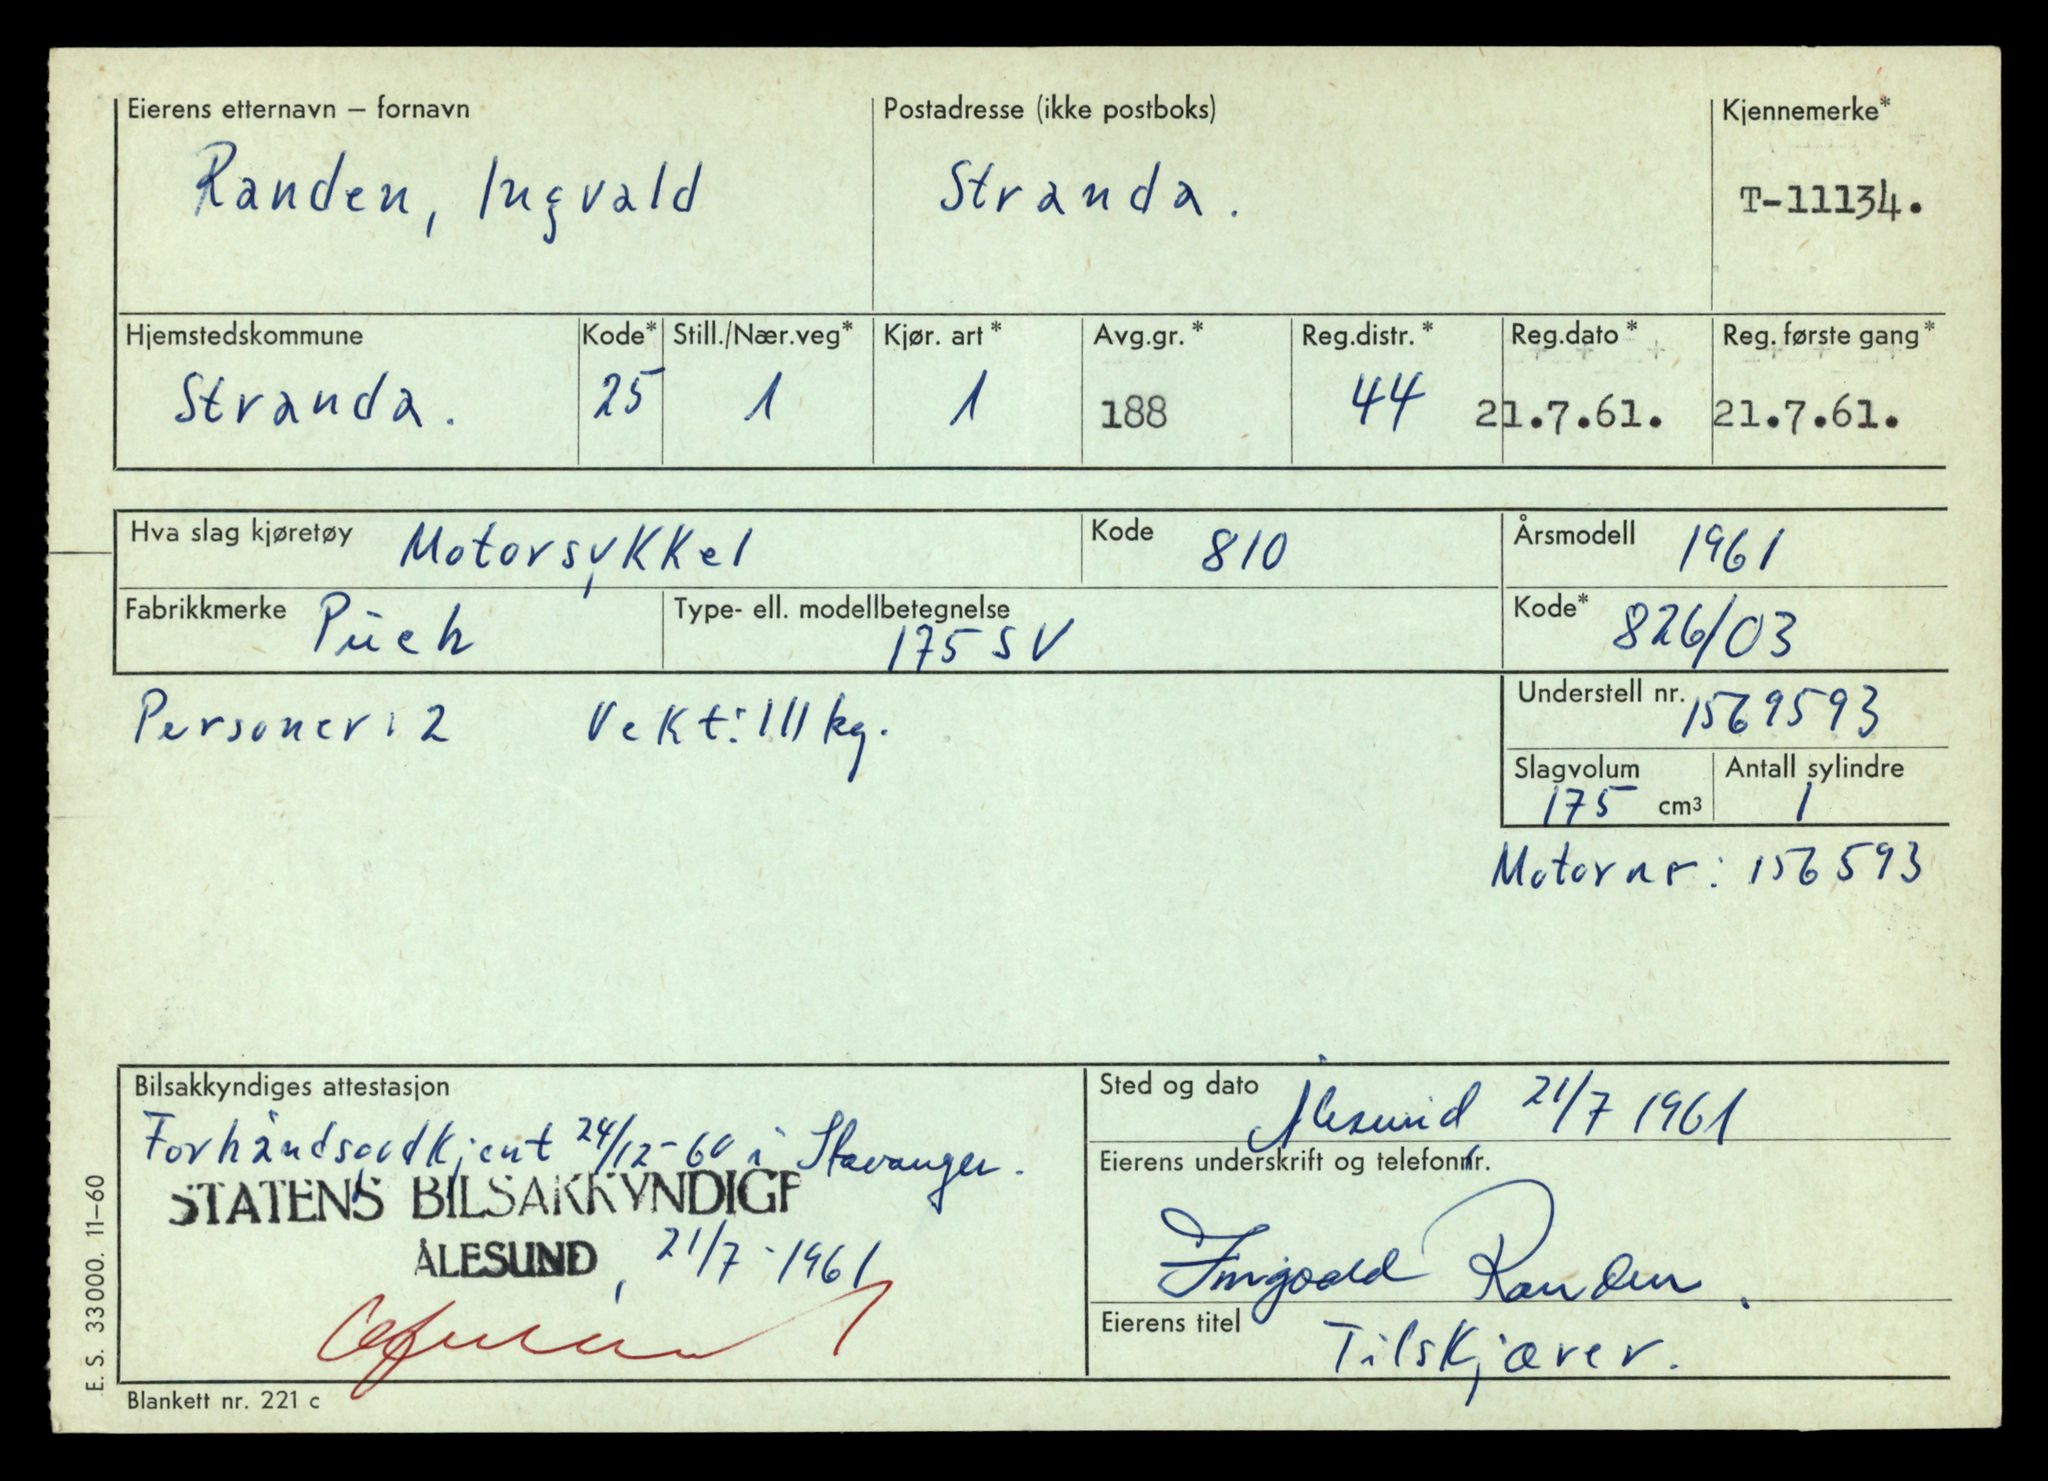 Eierens etternavn – fornavn
Randen, Ingvald
Postadresse (ikke postboks)
Stranda.
Kjennemerke*
T-11134.
Hjemstedskommune
Stranda.
Kode*
25
Still./Nær.veg*
1
Kjør. art*
1
Avg.gr.*
188
Reg.distr.*
44
Reg.dato*
21.7.61.
Reg. første gang*
21.7.61.
Hva slag kjøretøy Motorsykkel
Kode 810
Årsmodell 1961
Fabrikkmerke Püch
Type- ell. modellbetegnelse
175 SV
Kode* 826/03
Personer: 2 Vekt: 111 kg.
Understell nr. 1569593
Slagvolum
175 cm3
Antall sylindre
1
Motor nr: 156593
Bilsakkyndiges attestasjon
Forhåndsgodkjent 24/12-60 i Stavanger.
STATENS BILSAKKYNDIGE
ÅLESUND, 21/7-1961
Sted og dato Ålesund 21/7 1961
Eierens underskrift og telefonnr.
Ingvald Randen.
Eierens titel
Tilskjærer.
Blankett nr. 221 c
E. S. 33000. 11–60